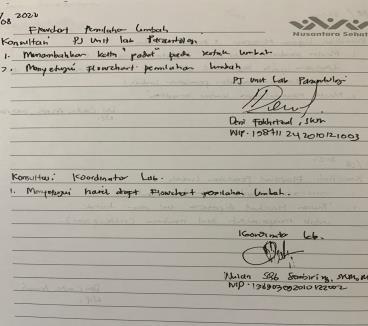 /08 2020
Flowchart Pemilahan Limbah
Nusantara Sehat
Konsultasi PJ Unit Lab Parasitologi
1. Menambahkan kata "padat" pada kotak limbah
2. Menyetujui flowchart pemilahan limbah
PJ Unit Lab Parasitologi
Deni Fakhrizal, SKM
NIP.
Konsultasi Koordinator Lab.
1. Menyetujui hasil draft Flowchart pemilahan limbah.
Koordinator Lab.
Wulan Sembiring,
NIP.